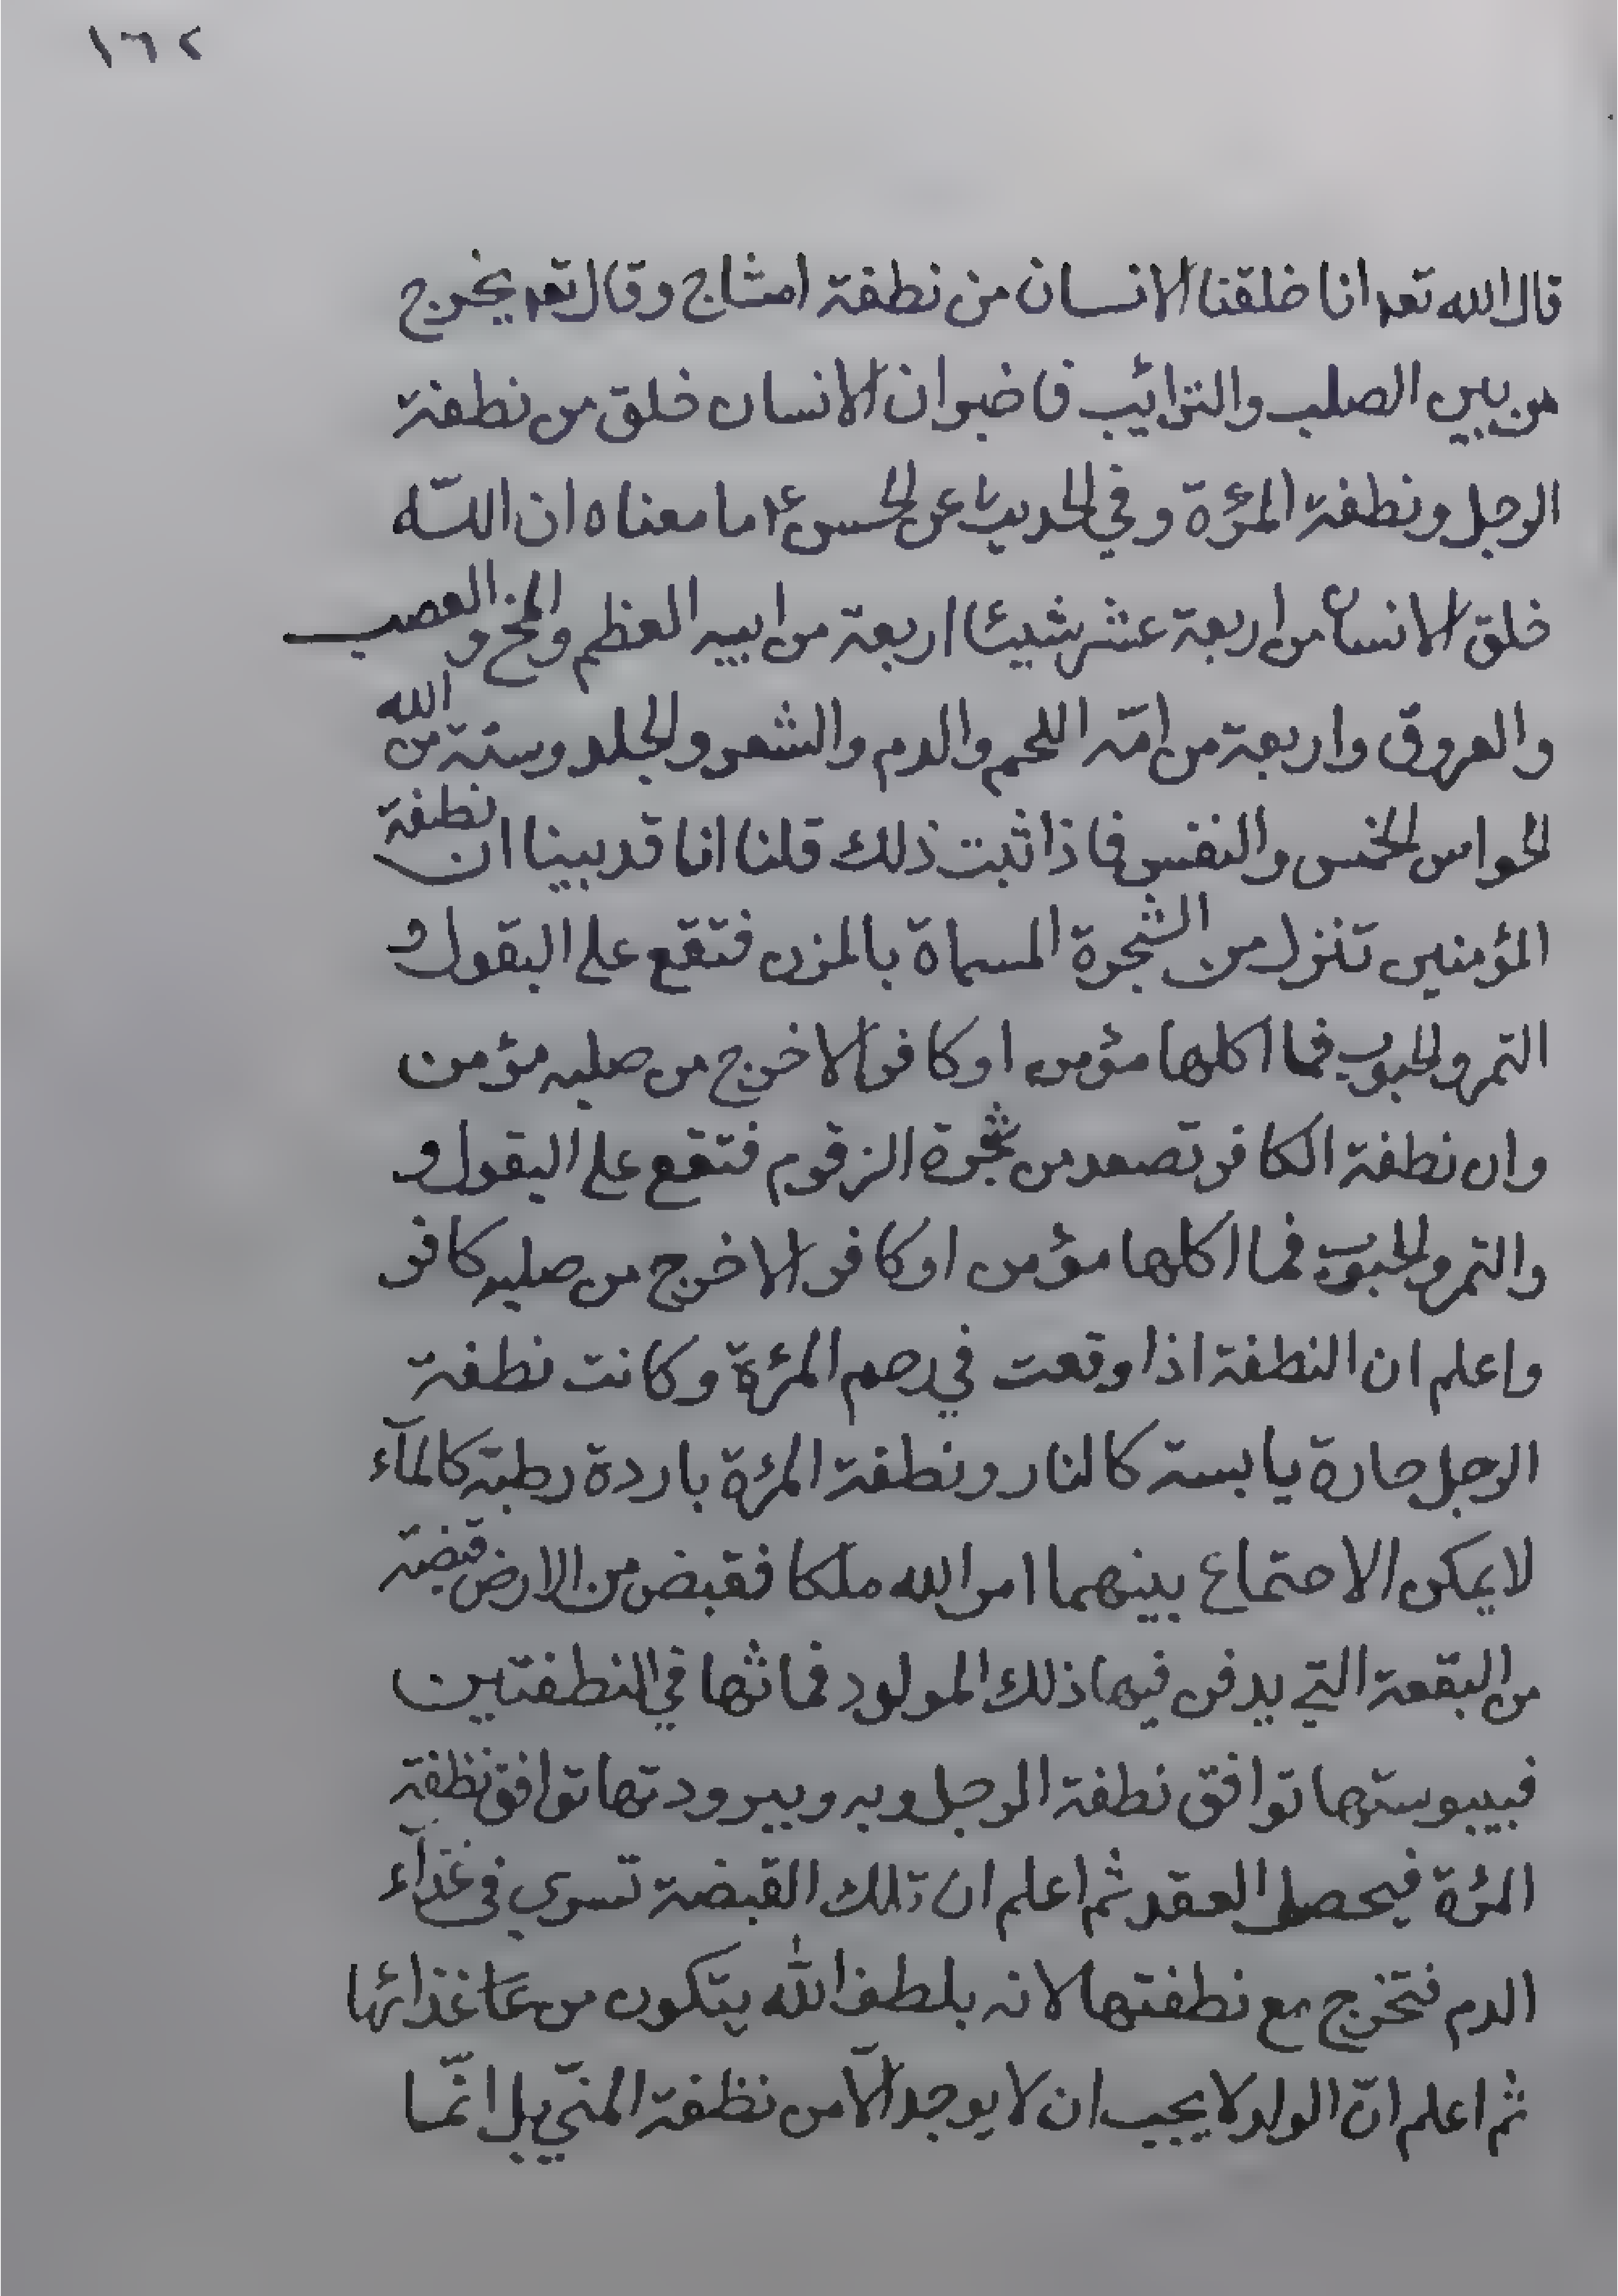 ١٦٢
قال الله تعه انا خلقنا الانسان من نطفة امشاج وقال تعه يخرج
من بين الصلب والترائب فاخبر ان الانسان خلق من نطفة
الرجل ونطفة المرؤة وفي الحديث عن الحسن ع اما معناه ان اللّه
خلق الانسان من اربعة عشر شيئا اربعة من ابيه العظم والمخ والعصب
والعروق واربعة من امّه اللحم والدم والشعر والجلد وستة من الله
الحواس الخمس والنفس فاذا ثبت ذلك قلنا انا قد بينا ان نطفة
المؤمنين تنزل من الشجرة المسماة بالمزن فتقع على البقول و
التمر والحبوب فما اكلها مؤمن او كافر الا خرج من صلبه مؤمن
وان نطفة الكافر تصعد من شجرة الزقوم فتقع على البقول و
والتمر والحبوب فما اكلها مؤمن او كافر الا خرج من صلبه كافر
واعلم ان النطفة اذا وقعت في رحم المرئة وكانت نطفة
الرجل حارة يابسة كالنار ونطفة المرئة باردة رطبة كالمآء
لا يمكن الاجتماع بينهما امر الله ملكا فقبض من الارض قبضة
من البقعة التي يدفن فيها ذلك المولود فماثها في النطفتين
فبيبوستها توافق نطفة الرجل وبه وببرودتها توافق نظفة
المرئة فيحصل العقد ثم اعلم ان تلك القبضة تسري في غذآء
الدم فتخرج مع نطفتها لانه بلطف الله يتكون من غذائها
ثم اعلم انّ الولد لا يجب ان لا يوجد الّا من نظفة المنيّ بل انّما